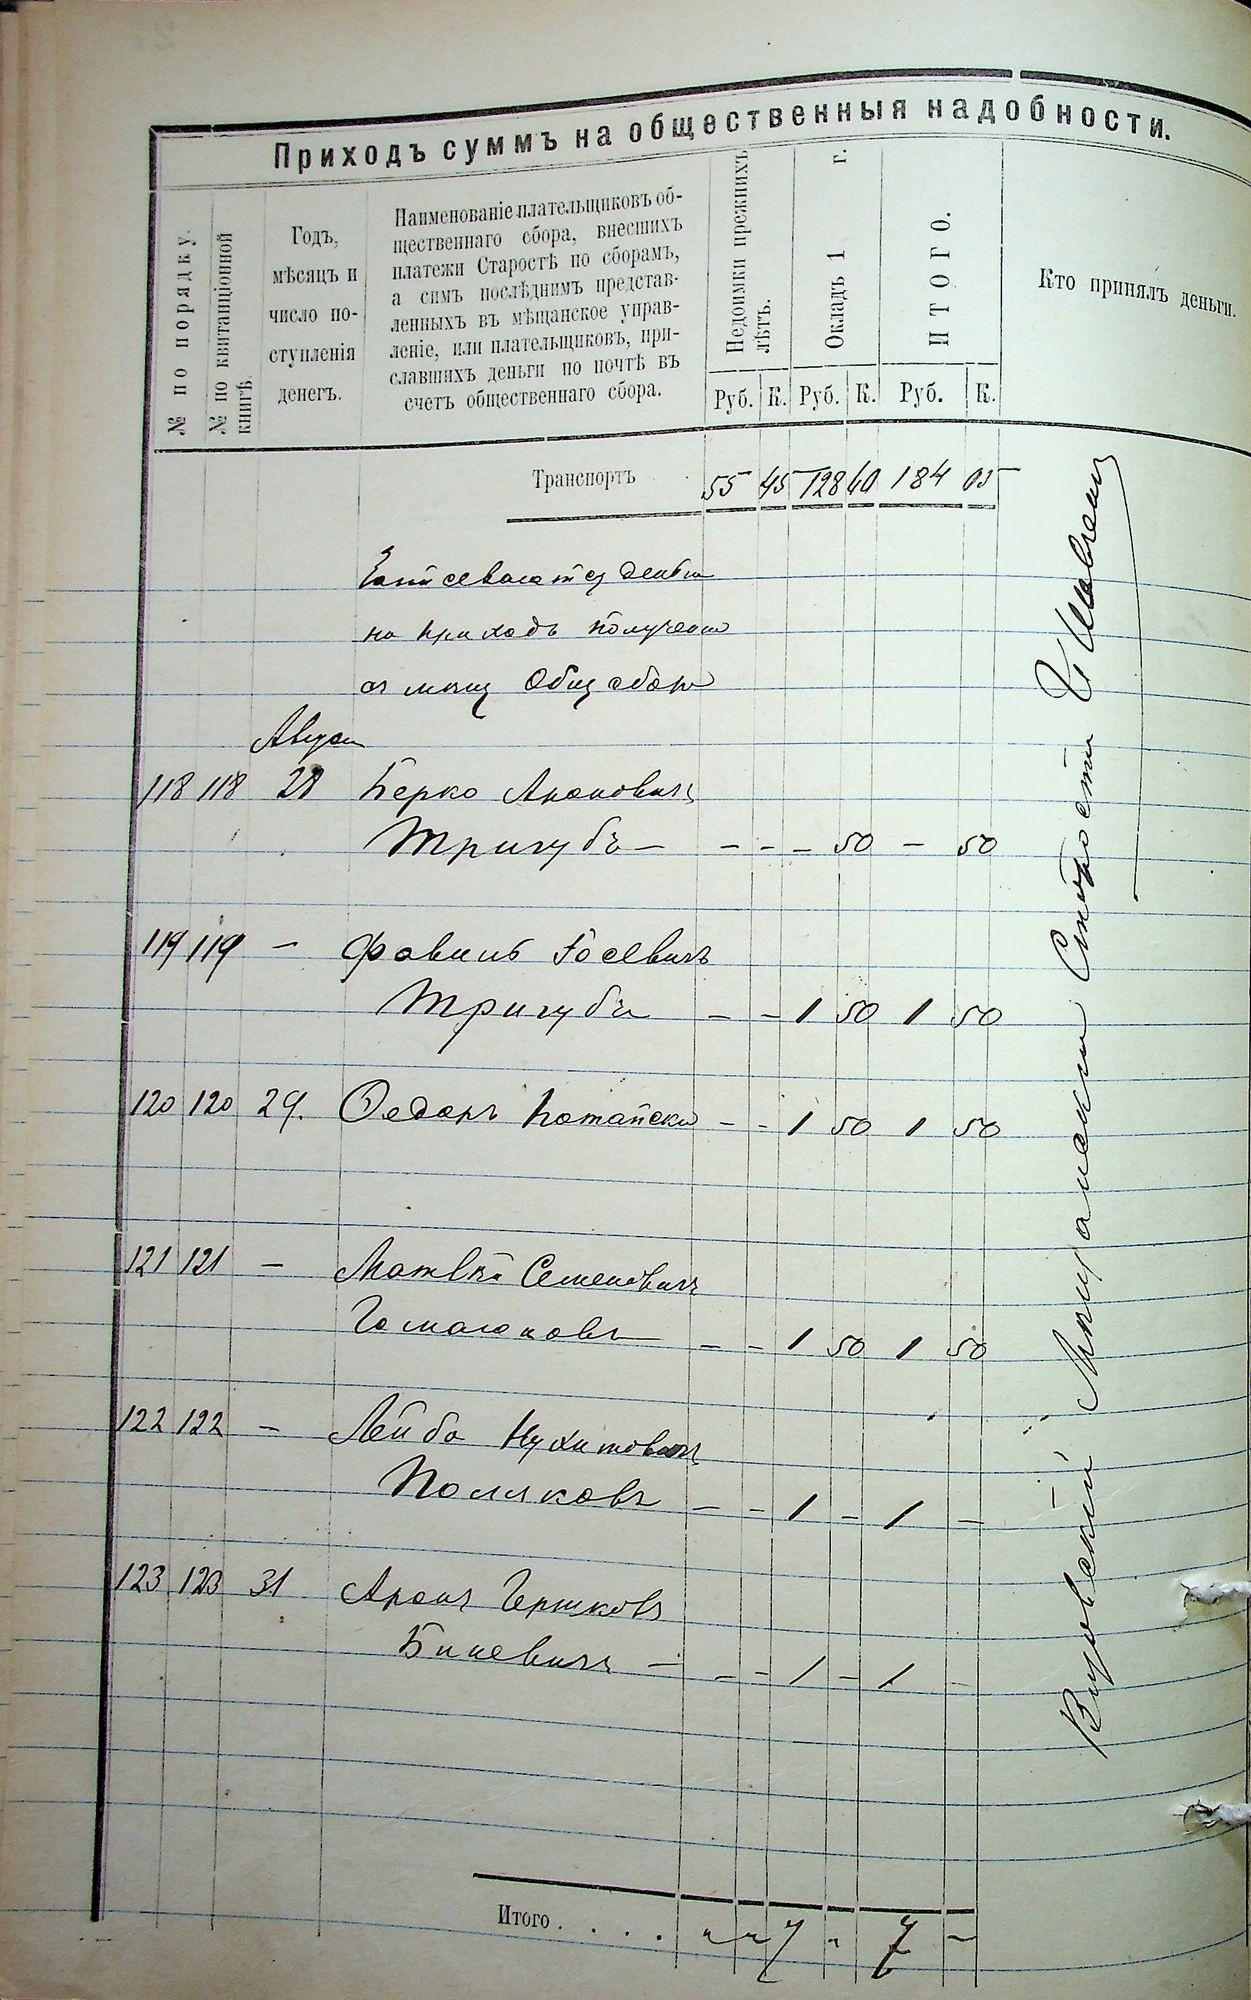 Приходъ суммъ на общественныя надобности.
№ по порядку.
№ по квитанціонной
книгѣ
Годъ,
мѣсяцъ и
число по-
ступленія
денегъ.
Наименованіе плательщиковъ об-
щественнаго сбора, внесшихъ
платежи Старостѣ по сборамъ,
а симъ послѣднимъ представ-
ленныхъ въ мѣщанское управ-
леніе, или плательщиковъ, при-
славшихъ деньги по почтѣ въ
счетъ общественнаго сбора.
Недоимки прежнихъ
лѣтъ.
Окладъ 1 г.
ИТОГО.
Кто принялъ деньги.
Руб. К. Руб. К. Руб. К.
Транспортъ 55 45 128 60 184 05
деньги
на приходъ
от мѣщ Общ сбора
Август
118 118 28 Берко Ароновичъ
Тригубъ — — - — 50 — 50
119 119 — Файвиль
Тригубъ — — 1 50 1 50
120 120 29. Федоръ — - 1 50 1 50
121 121 — Матвѣй Семеновичъ
— — 1 50 1 50
122 122 — Лейба
Поляковъ — — 1 — 1 —
123 123 31 Аронъ Гершковъ
Биневичъ — — — 1 — 1 —
Мѣщанскій Староста
Итого . . . . " " 7 " 7 —